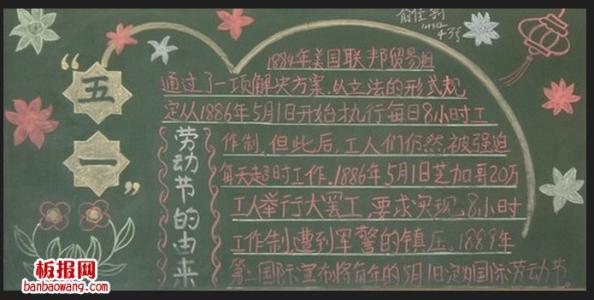 五
一
劳动节的由来
1884年美国联邦贸易组
通过了一项解决方案,从立法的形式规
定从1886年5月1日开始执行每日8小时工
作制,但此后,工人们仍然被强迫
每天超时工作,1886年5月1日芝加哥20万
工人举行大罢工,要求实现8小时
工作制,遭到军警的镇压,1889年
第二国际宣布将每年的5月1日定为国际劳动节
板报网
banbaowang.com